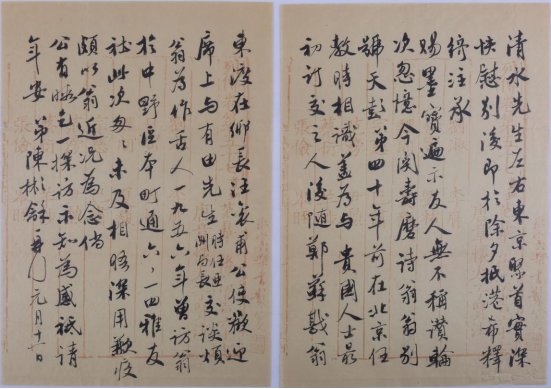 清水先生左右東京聚首實深
快慰別後即於除夕抵港希釋
綺注承
賜墨寶遍示友人無不稱讚輪
次忽憶今関壽麿詩翁翁別
號天彭第四十年前在北京任
教時相識蓋為與貴國人士最
初訂交之人後隨鄭蘇戡翁
東渡在鄉長汪袞甫公使歡迎
席上與有田先生時任亞洲局長交談煩
翁為作舌人一九五六年曾訪翁
於中野區本町通六、一四雅友
社此次匆匆未及相晤深用歉疚
頗以翁近况為念倘
公有暇乞一探訪示知為感祗請
年安 弟陳彬龢再拜 元月十一日